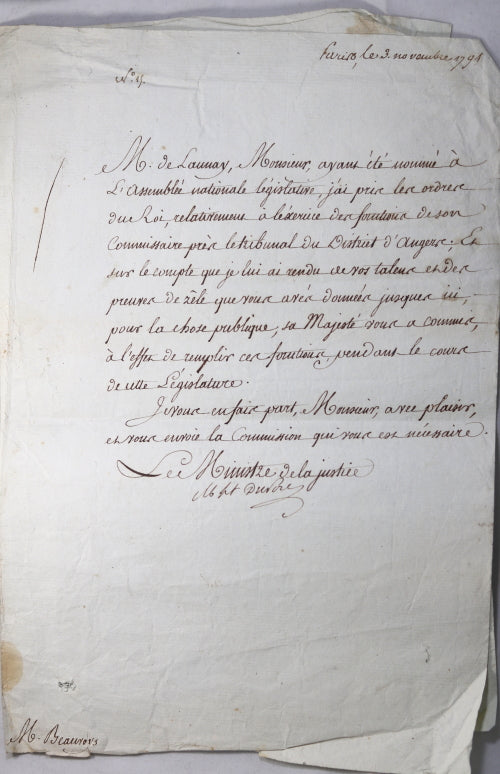 Paris, le 3. novembre 1791
N.° 4.
M. de Launay, Monsieur, ayant été nommé à
L'Assemblée nationale législative, j'ai pris les ordres
du Roi, relativement à l'éxercice des fonctions de son
Commissaire près le tribunal du District d'Angers; Et
sur le compte que je lui ai rendu de vos talens et des
preuves de zèle que vous avés données jusques ici,
pour la chose publique, sa Majesté vous a commis,
à l'effet de remplir ces fonctions, pendant le cours
de cette Législature.
Je vous en fais part, Monsieur, avec plaisir,
et vous envoie la Commission qui vous est nécessaire.
Le Ministre de la justice
M. Beauvois